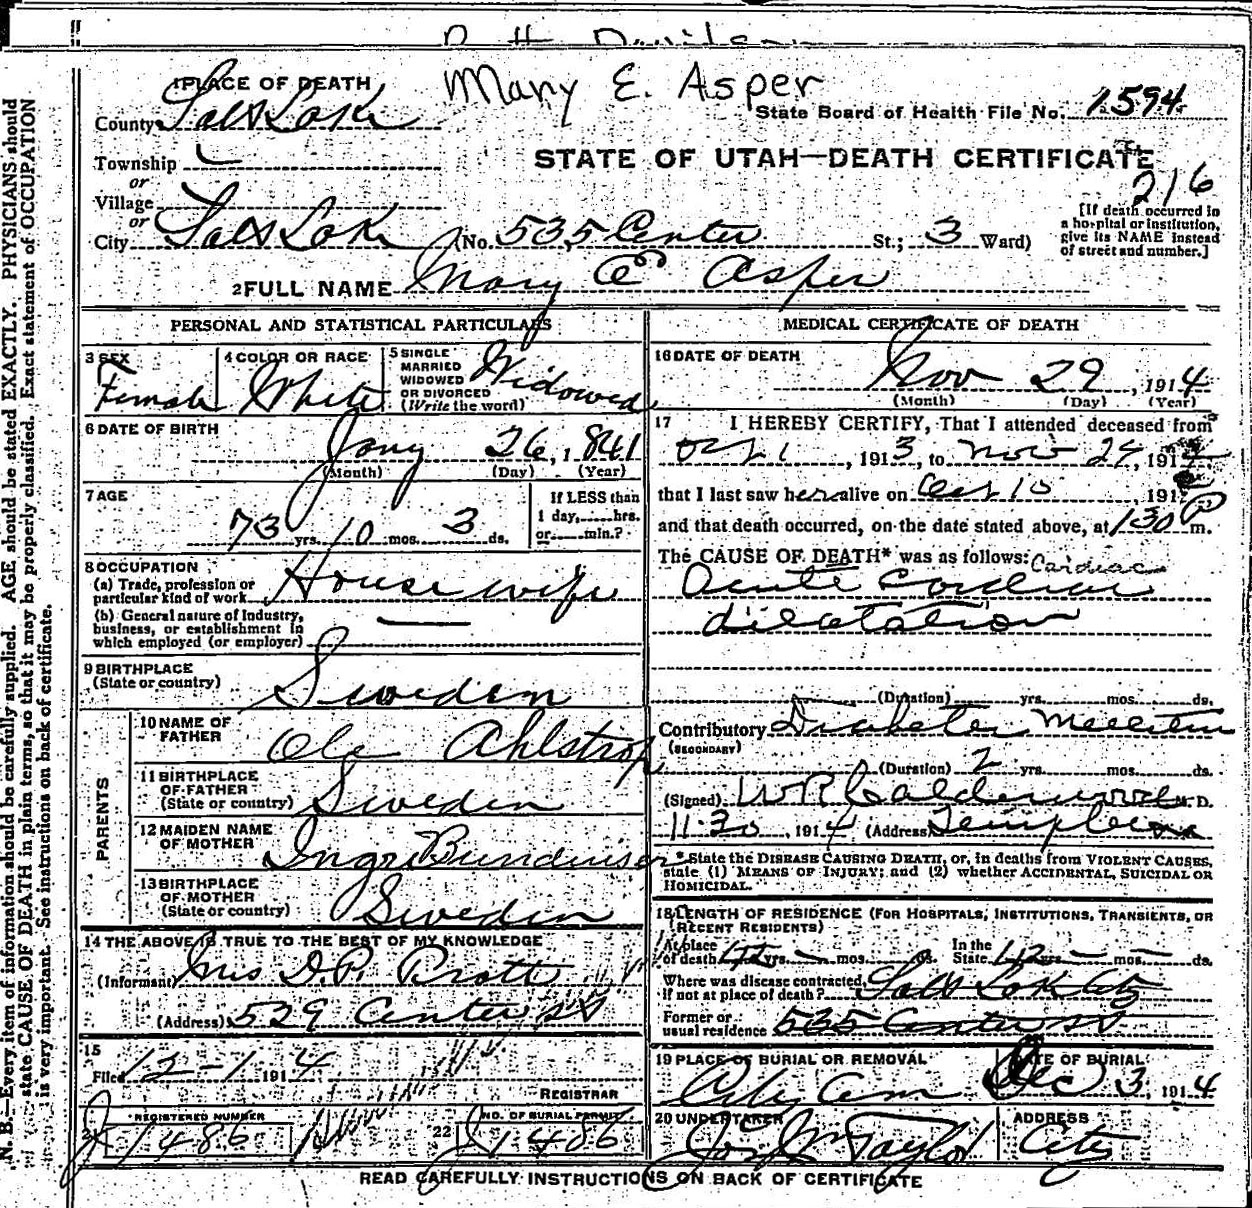 Mary E. Asper
1 PLACE OF DEATH
County Salt Lake
State Board of Health File No. 1594
Township
or
Village
or
STATE OF UTAH—DEATH CERTIFICATE
216
City Salt Lake (No. 535 Center St.; 3 Ward)
[If death occurred in
a hospital or institution,
give its NAME instead
of street and number.]
2 FULL NAME Mary E Asper
PERSONAL AND STATISTICAL PARTICULARS
3 SEX Female
4 COLOR OR RACE White
5 SINGLE
MARRIED
WIDOWED
OR DIVORCED
(Write the word) Widowed
6 DATE OF BIRTH
Jany 26, 1841
(Month) (Day) (Year)
7 AGE
73 yrs. 10 mos. 3 ds.
If LESS than
1 day, hrs.
or min.?
8 OCCUPATION
(a) Trade, profession or
particular kind of work House wife
(b) General nature of Industry,
business, or establishment in
which employed (or employer)
9 BIRTHPLACE
(State or country) Sweden
PARENTS
10 NAME OF
FATHER Ola Ahlstrop
11 BIRTHPLACE
OF FATHER
(State or country) Sweden
12 MAIDEN NAME
OF MOTHER Ingri
13 BIRTHPLACE
OF MOTHER
(State or country) Sweden
14 THE ABOVE IS TRUE TO THE BEST OF MY KNOWLEDGE
(Informant) Mrs D.P.
(Address) 529 Center St
15
Filed 12-1 1914
REGISTRAR
REGISTERED NUMBER
21 J 1486
NO. OF BURIAL PERMIT
22 J 1486
MEDICAL CERTIFICATE OF DEATH
16 DATE OF DEATH
Nov 29, 1914
(Month) (Day) (Year)
17 I HEREBY CERTIFY, That I attended deceased from
Oct 1, 1913, to Nov 29, 191
that I last saw her alive on 10, 191
and that death occurred, on the date stated above, at 130 P m.
The CAUSE OF DEATH* was as follows: Cardiac
acute cardiac
dilatation
(Duration) yrs. mos. ds.
Contributory Diabetes
(SECONDARY)
(Duration) 2 yrs. mos. ds.
(Signed) W R Calderwood M. D.
11-30, 1914 (Address)
*State the DISEASE CAUSING DEATH, or, in deaths from VIOLENT CAUSES,
state (1) MEANS OF INJURY; and (2) whether ACCIDENTAL, SUICIDAL OR
HOMICIDAL.
18 LENGTH OF RESIDENCE (FOR HOSPITALS, INSTITUTIONS, TRANSIENTS, OR
RECENT RESIDENTS)
At place
of death yrs. mos. ds.
In the
State yrs. mos. ds.
Where was disease contracted,
if not at place of death? Salt Lake City
Former or
usual residence 535 Center St
19 PLACE OF BURIAL OR REMOVAL
City Cem
DATE OF BURIAL
Dec 3, 1914
20 UNDERTAKER
Jos Wm Taylor
ADDRESS
City
READ CAREFULLY INSTRUCTIONS ON BACK OF CERTIFICATE
N. B.—Every item of information should be carefully supplied. AGE should be stated EXACTLY. PHYSICIANS should
state CAUSE OF DEATH in plain terms, so that it may be properly classified. Exact statement of OCCUPATION
is very important. See instructions on back of certificate.